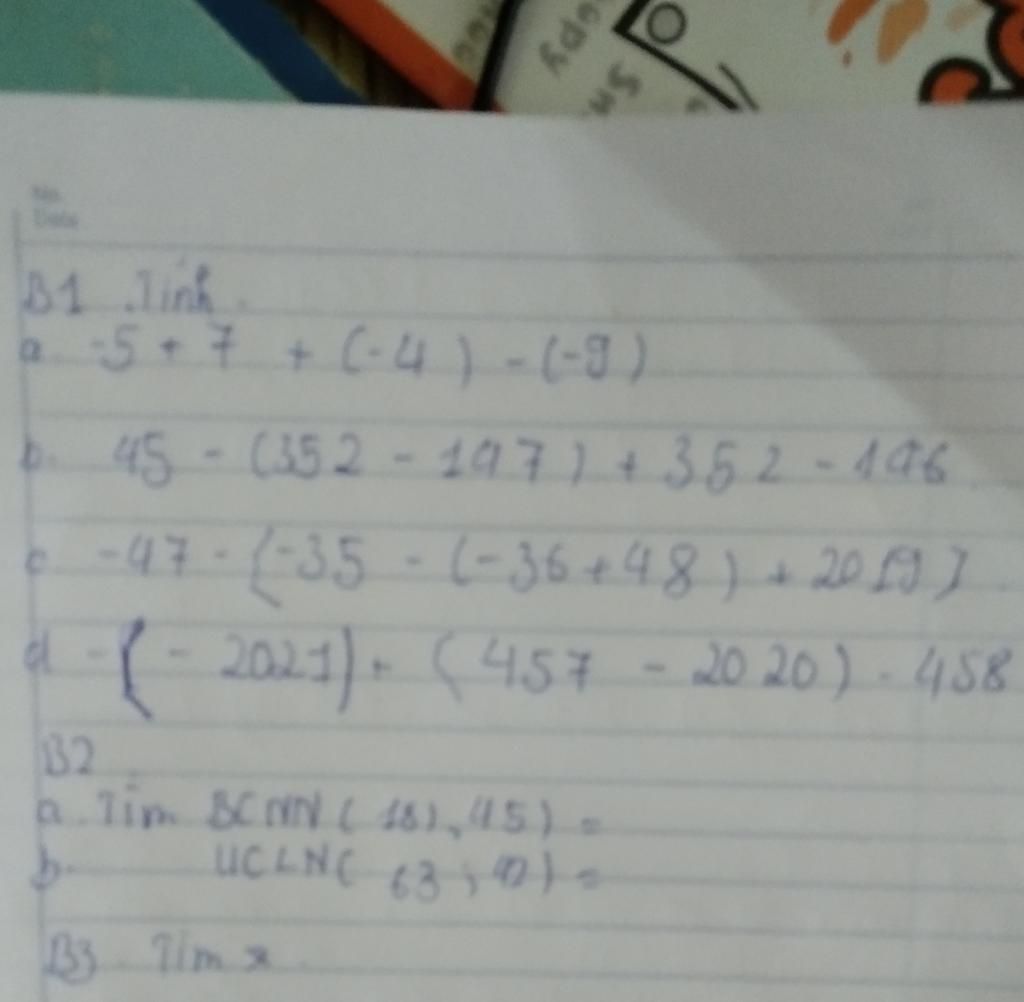 copy
No.
Date
B1 Tính
a. -5 + 7 + (-4) - (-9)
b. 45 - (352 - 197) + 352 - 196
c -47 - [-35 - (-36 + 48) + 2019]
d - (-2021) + (457 - 2020) - 458
B2
a. Tìm BCNN( 18, 45) =
b. UCLN( 63 ; ) =
B3 Tìm x